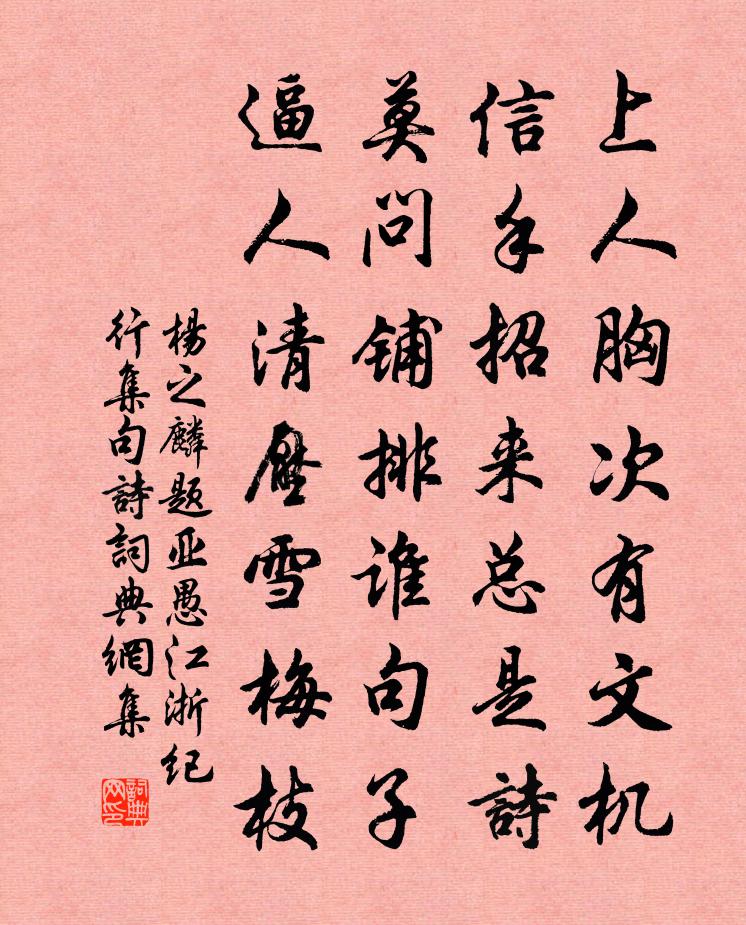 上人胸次有文机
信手招来总是詩
莫问铺排谁句子
逼人清壓雪梅枝
楊之麟题亚愚江浙纪
行集句詩詞典網集
詞典网印